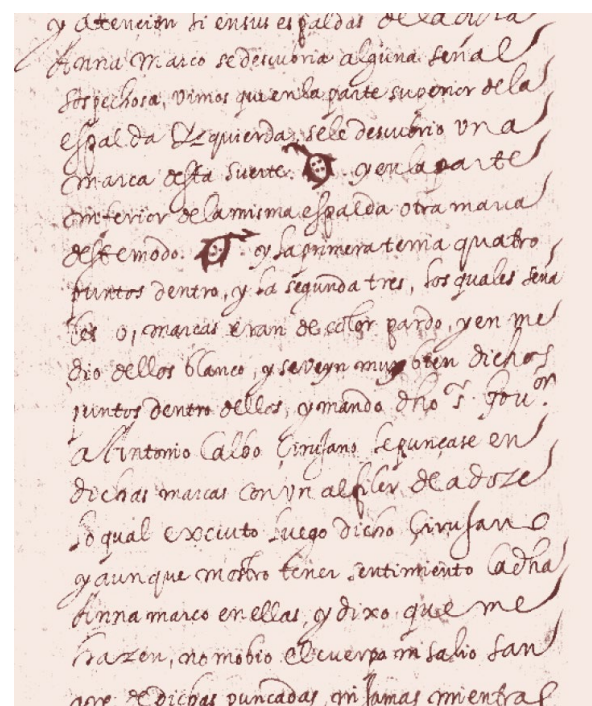 y atencion si en sus espaldas de la dicha
Anna Marco se descubria alguna señal
sospechosa, vimos que en la parte superior de la
espalda Izquierda, se le descubrio una
marca desta suerte. y en la parte
inferior de la misma espalda otra marca
deste modo. y la primera tenia quatro
puntos dentro, y la segunda tres, los quales seña
les o, marcas eran de color pardo, y en me
dio dellos blanco, y se veyn muy bien dichos
puntos dentro dellos, y mando dho Sr. Gouor.
a Antonio Calbo Cirujano le punçase en
dichas marcas con un alfiler de a doze
lo qual exciuto luego dicho Cirujano
y aunque mostro tener sentimiento la dha
Anna marco en ellas, y dixo que me
hazen, no mobio el cuerpo ni salio san
gre de dichas puncadas, ni jamas mientras